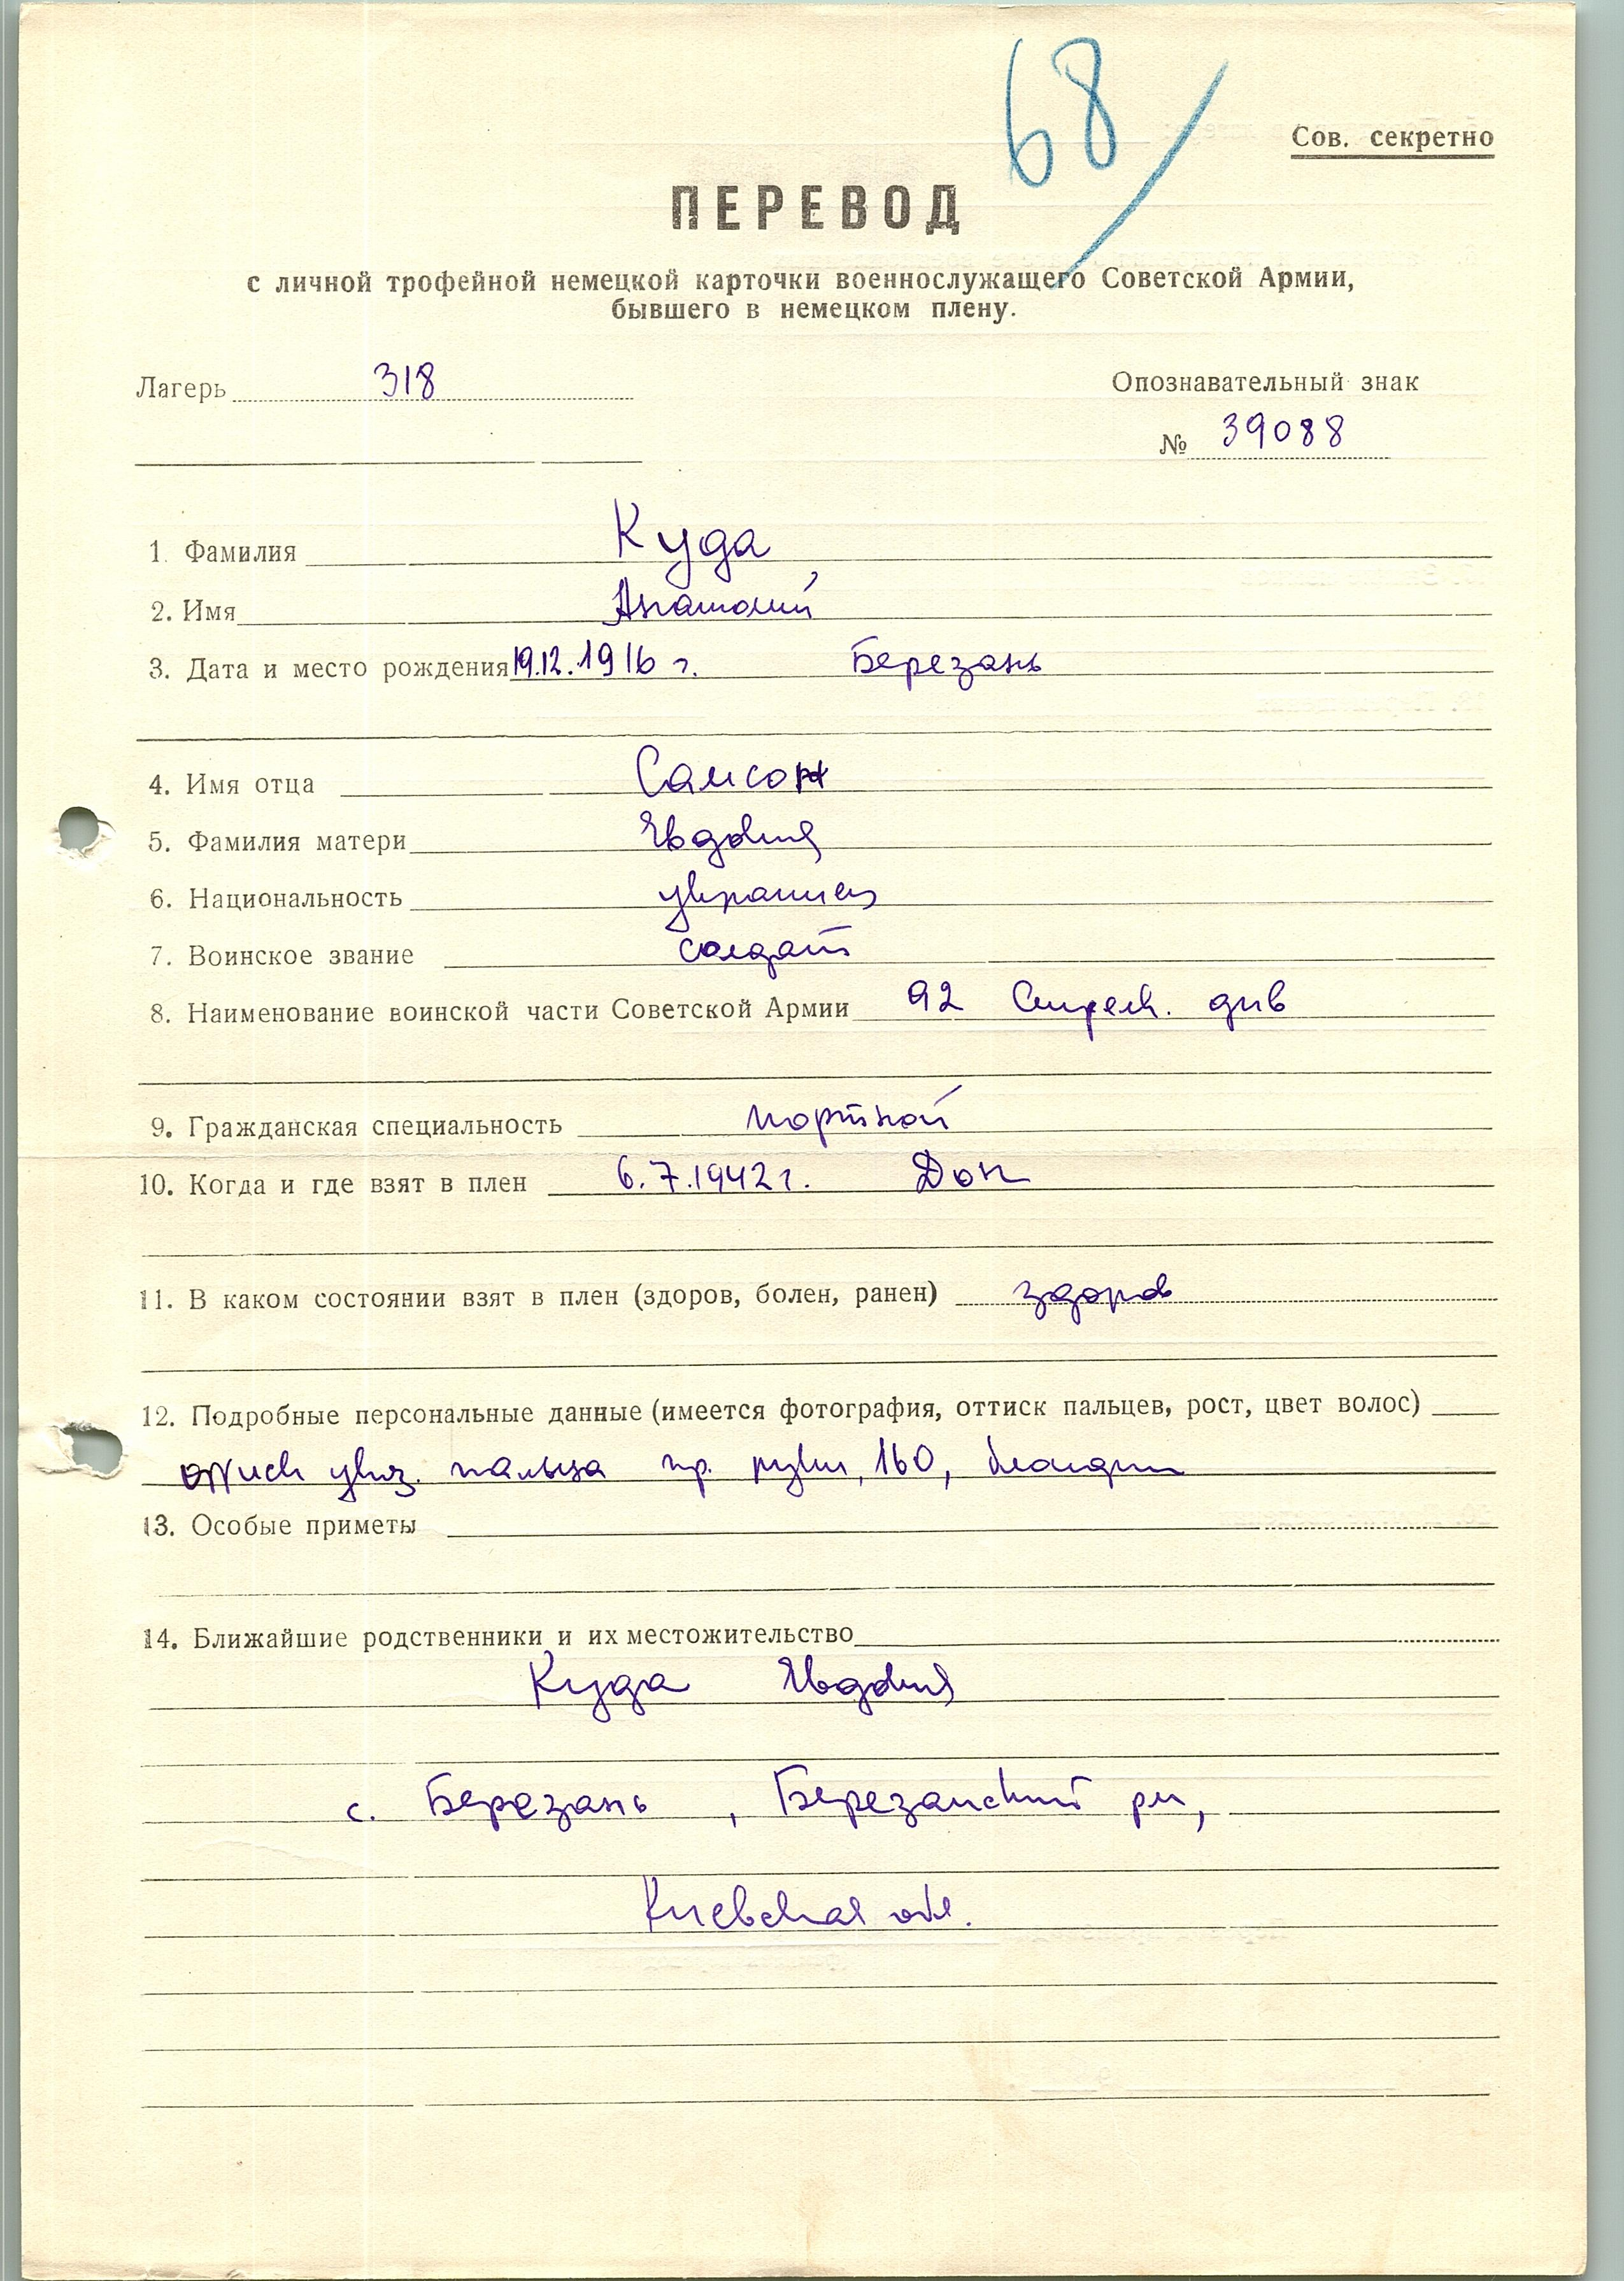 68
Сов. секретно
ПЕРЕВОД
с личной трофейной немецкой карточки военнослужащего Советской Армии,
бывшего в немецком плену.
Лагерь 318 Опознавательный знак
№ 39088
1. Фамилия Куда
2. Имя Анатолий
3. Дата и место рождения 19.12.1916 г. Березань
4. Имя отца Самсон
5. Фамилия матери Евдокия
6. Национальность украинец
7. Воинское звание солдат
8. Наименование воинской части Советской Армии 92 Стрелк. див
9. Гражданская специальность портной
10. Когда и где взят в плен 6.7.1942 г. Дон
11. В каком состоянии взят в плен (здоров, болен, ранен) здоров
12. Подробные персональные данные (имеется фотография, оттиск пальцев, рост, цвет волос)
оттиск указ. пальца пр. руки, 160, блондин
13. Особые приметы
14. Ближайшие родственники и их местожительство
Куда Евдокия
с. Березань, Березанский рн,
Киевская обл.